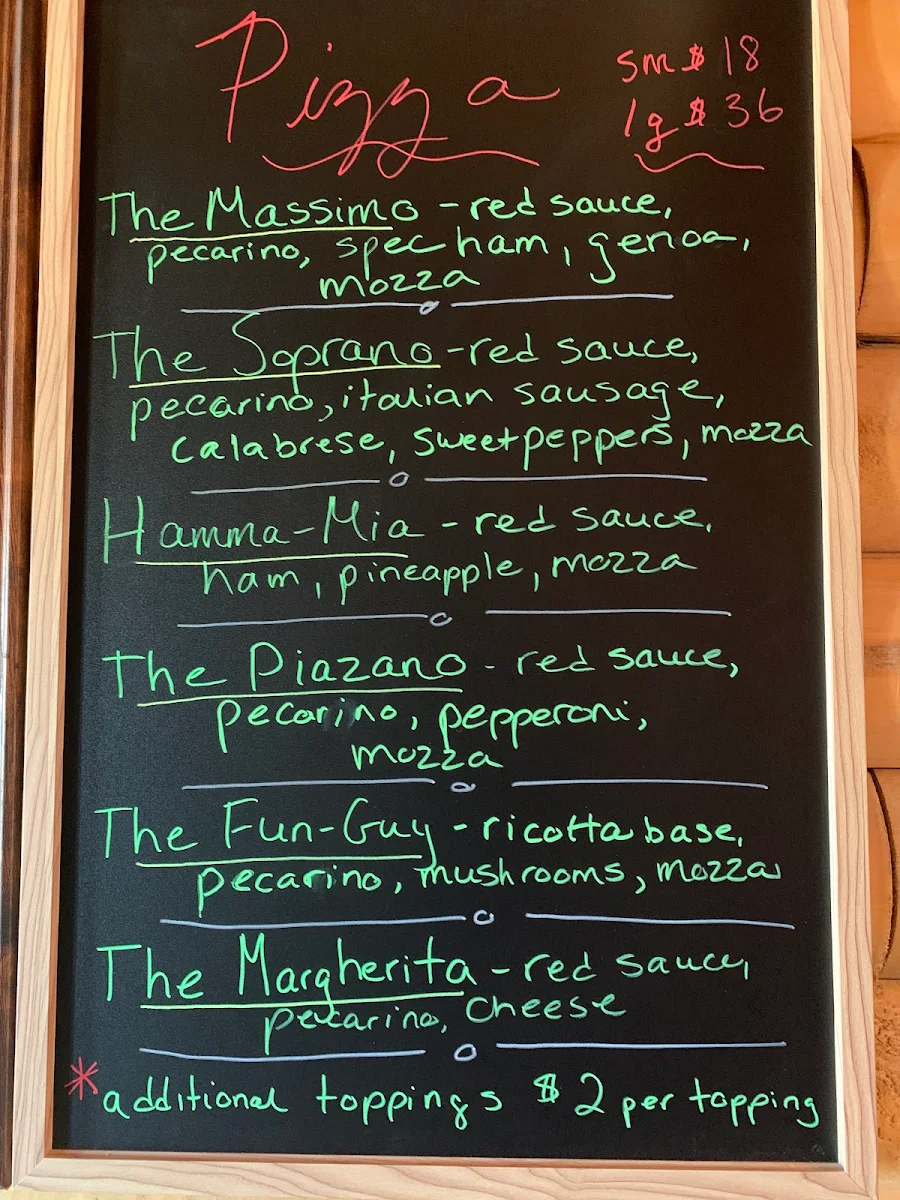 Pizza
sm $18
lg $36
The Massimo - red sauce,
pecarino, spec ham, genoa,
mozza
The Soprano - red sauce,
pecarino, italian sausage,
calabrese, sweet peppers, mozza
Hamma-Mia - red sauce,
ham, pineapple, mozza
The Piazano - red sauce,
pecarino, pepperoni,
mozza
The Fun-Guy - ricotta base,
pecarino, mushrooms, mozza
The Margherita - red sauce,
pecarino, cheese
* additional toppings $2 per topping